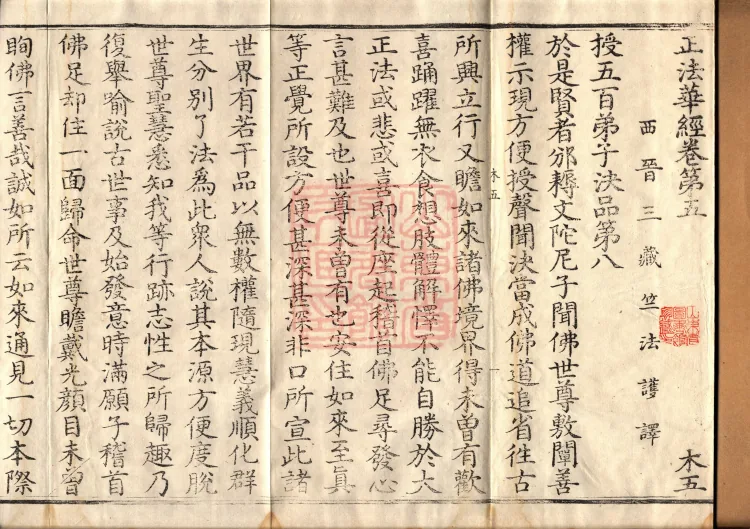 正法華經卷第五
木五
西晉三藏竺法護譯
授五百弟子決品第八
於是賢者邠耨文陀尼子聞佛世尊敷闡善
權示現方便授聲聞決當成佛道追省往古
木五
所興立行又瞻如來諸佛境界得未曾有歡
喜踊躍無衣食想肢體解懌不能自勝於大
正法或悲或喜即從座起稽首佛足尋發心
言甚難及也世尊未曾有也安住如來至真
等正覺所設方便甚深甚深非口所宣此諸
世界有若干品以無數權隨現慧義順化群
生分別了法為此眾人說其本源方便度脫
世尊聖慧悉知我等行跡志性之所歸趣乃
復舉喻說古世事及始發意時滿願子稽首
佛足却住一面歸命世尊瞻戴光顏目未曾
眴佛言善哉誠如所云如來通見一切本際